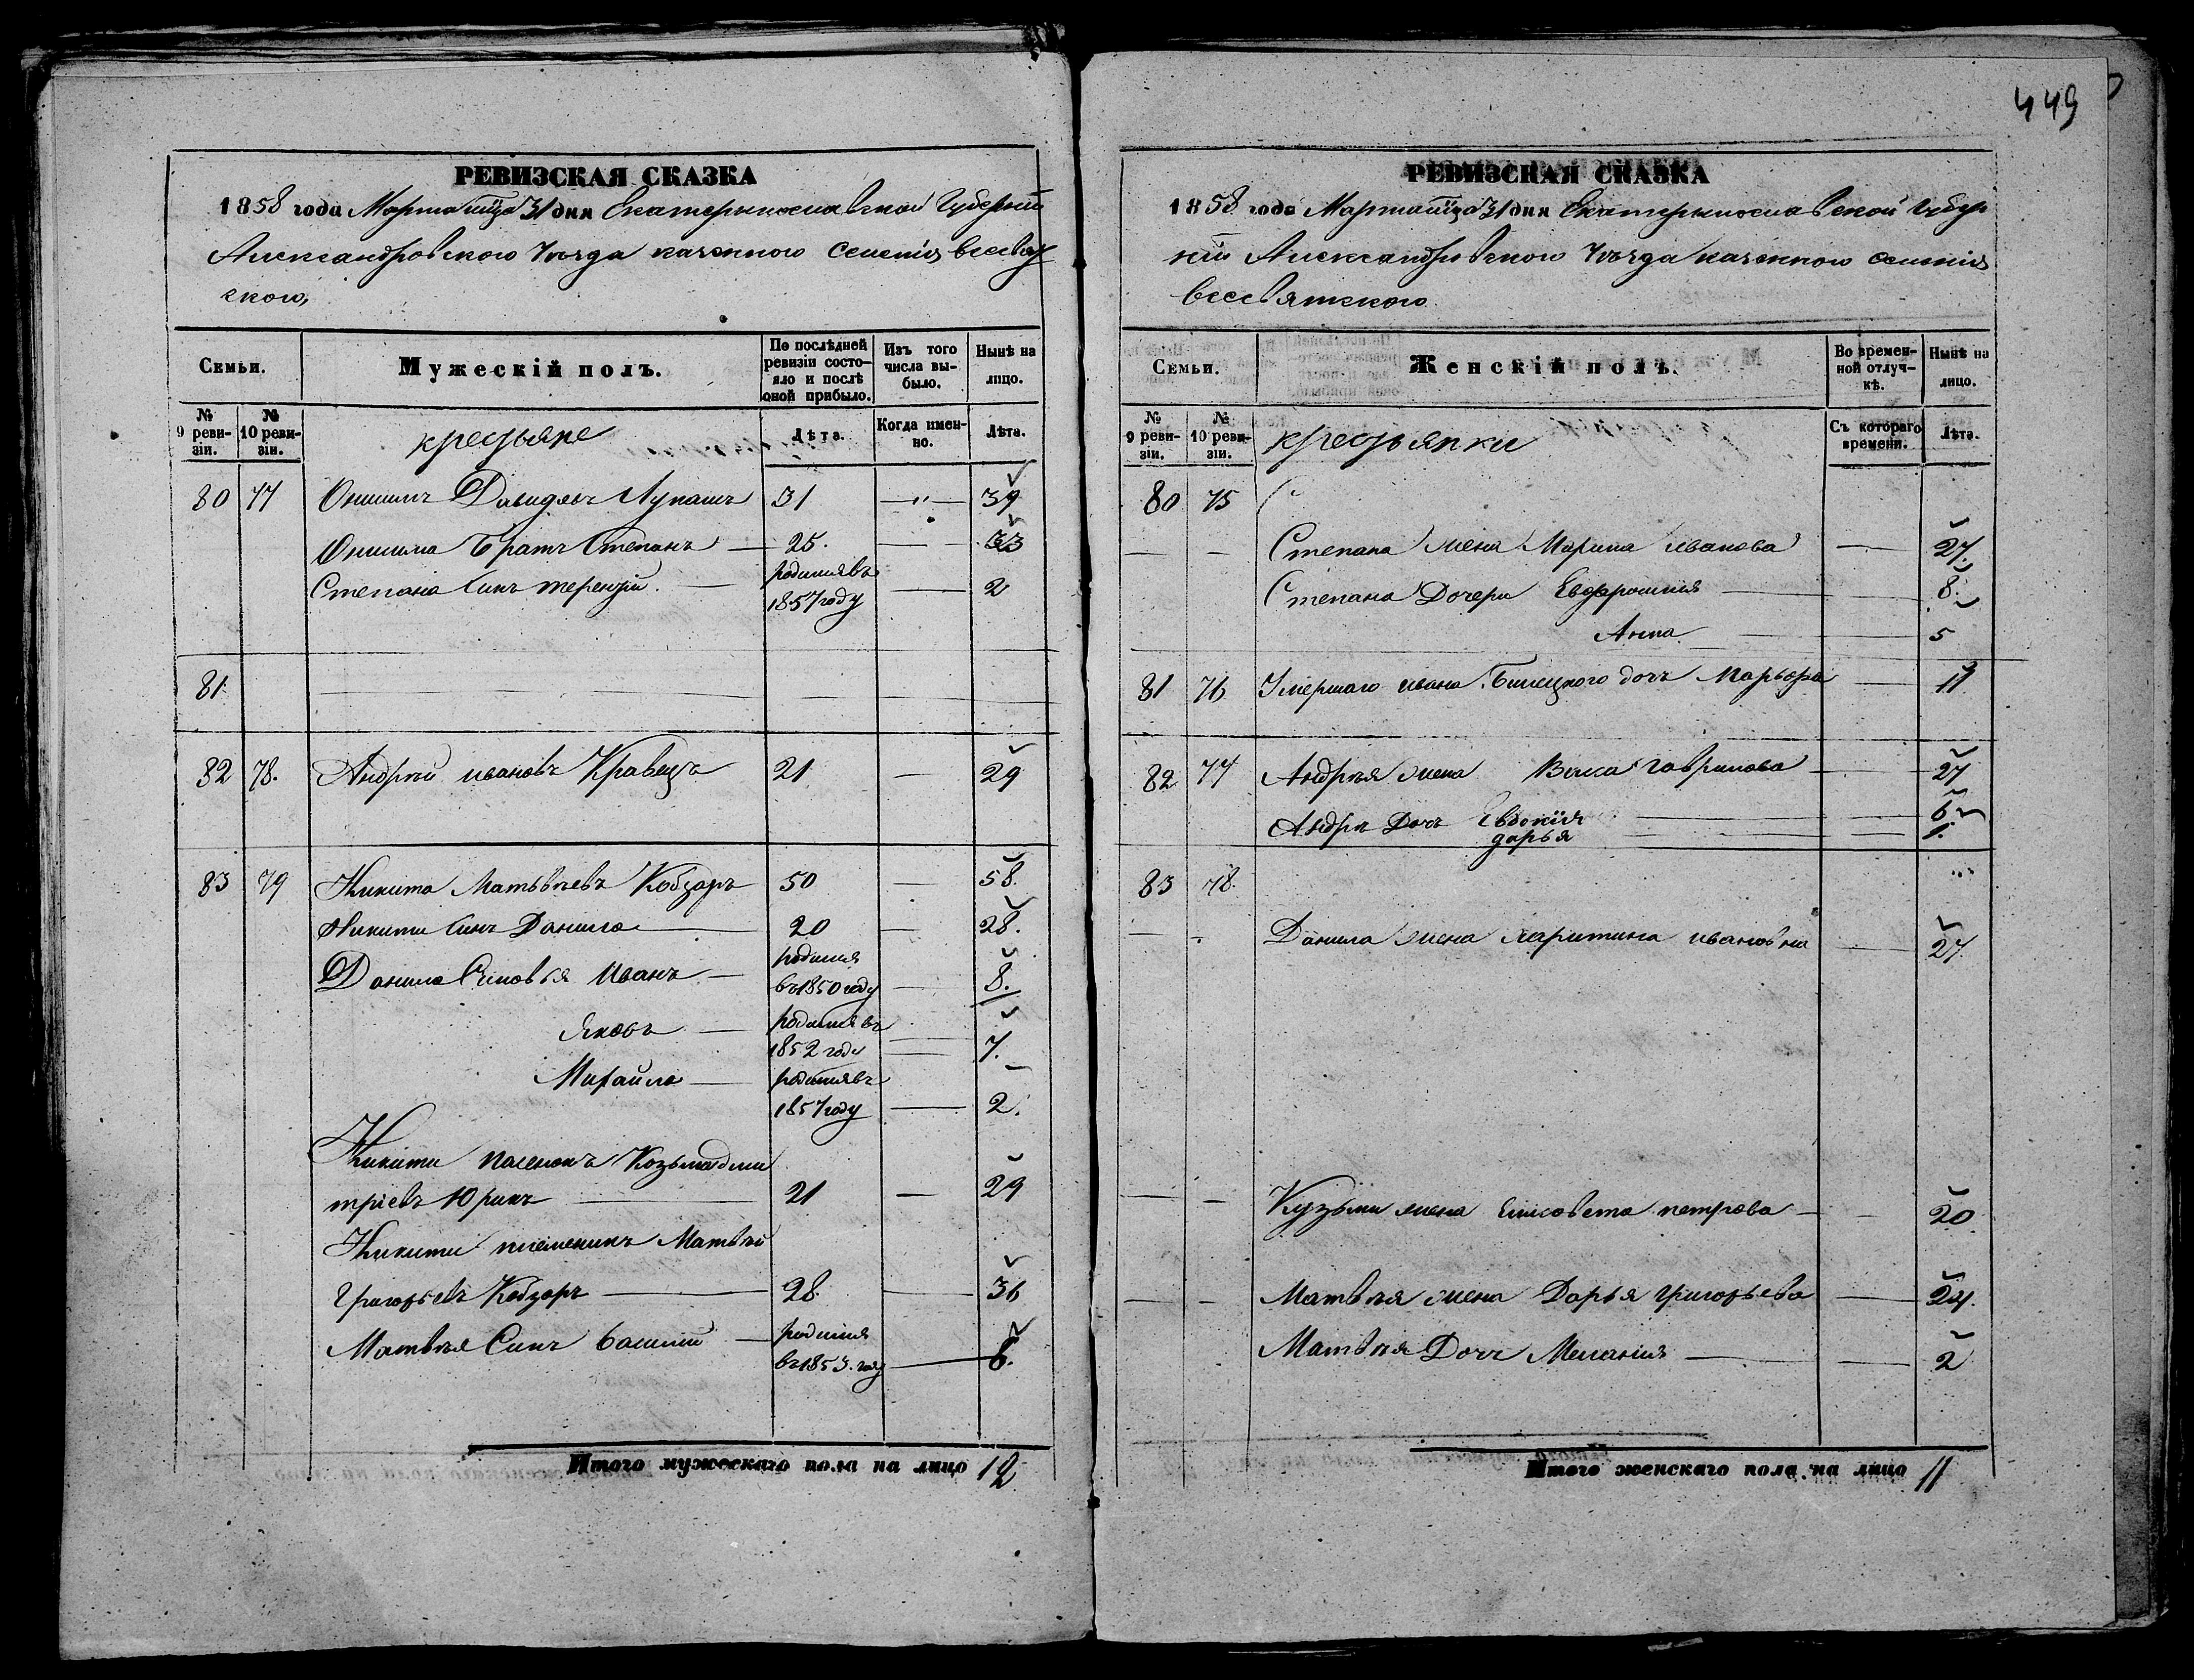 449
РЕВИЗСКАЯ СКАЗКА
1858 года Марта 31 дня Екатерынославской Губерніи
Александровского Уѣзда казенного Селенія всесвят
ского,
Семьи.
Мужескій полъ.
По послѣдней ревизіи состояло и послѣ оной прибыло.
Изъ того числа выбыло.
Нынѣ на лицо.
№ 9 ревизіи.
№ 10 ревизіи.
крестьяне
Лѣта.
Когда именно.
Лѣта.
80 77 Онисимъ Давидовъ Лупашъ 31 —"— 39
Онисима Братъ Степанъ — 25. — 33
Степана Синъ терентій. — родился въ 1857 году — 2
81.
82 78. Андрѣй ивановъ Кравецъ 21 — 29
83 79 Никита Матвѣевъ Кобзарь 50 — 58.
Никити Синъ Данило — 20 — 28.
Данила Синовья Иванъ — родился въ 1850 году — 8.
Яковъ — родился въ 1852 году — 7.
Михайло — родился въ 1857 году — 2.
Никити пасенокъ Козьма дми
тріевъ Юринъ — 21 — 29
Никити племеникъ Матвѣй
Григорьевъ Кобзарь — 28. — 36
Матвѣя Синъ Василій — родился въ 1853. году — 6.
Итого мужескаго пола на лицо 12
РЕВИЗСКАЯ СКАЗКА
1858 года Марта 31 дня Екатерынославской Губер
ніи Александровского Уѣзда казенного селенія
всесвятского.
Семьи.
Женскій полъ.
Во временной отлучкѣ.
Нынѣ на лицо.
№ 9 ревизіи.
№ 10 ревизіи.
крестьянки
Съ котораго времени.
Лѣта.
80 75
— — Степана жена Марина иванова — 27.
Степана Дочери Евфросинія — 8.
Анна. — 5
81 76 Умершаго ивана Билецкого дочь Марьфа — 11
82 77 Андрѣя жена Васа гаврилова — 27
Андрѣ Дочь Евдокія — 6
дарья — 1.
83 78.
— - Данила жена харитина ивановна — 27.
— — Кузьми жена Елисовета петрова — 20.
— — Матвѣя жена Дарья григорьева — 24.
Матвѣя Дочъ Меланія — 2
Итого женскаго пола на лицо 11